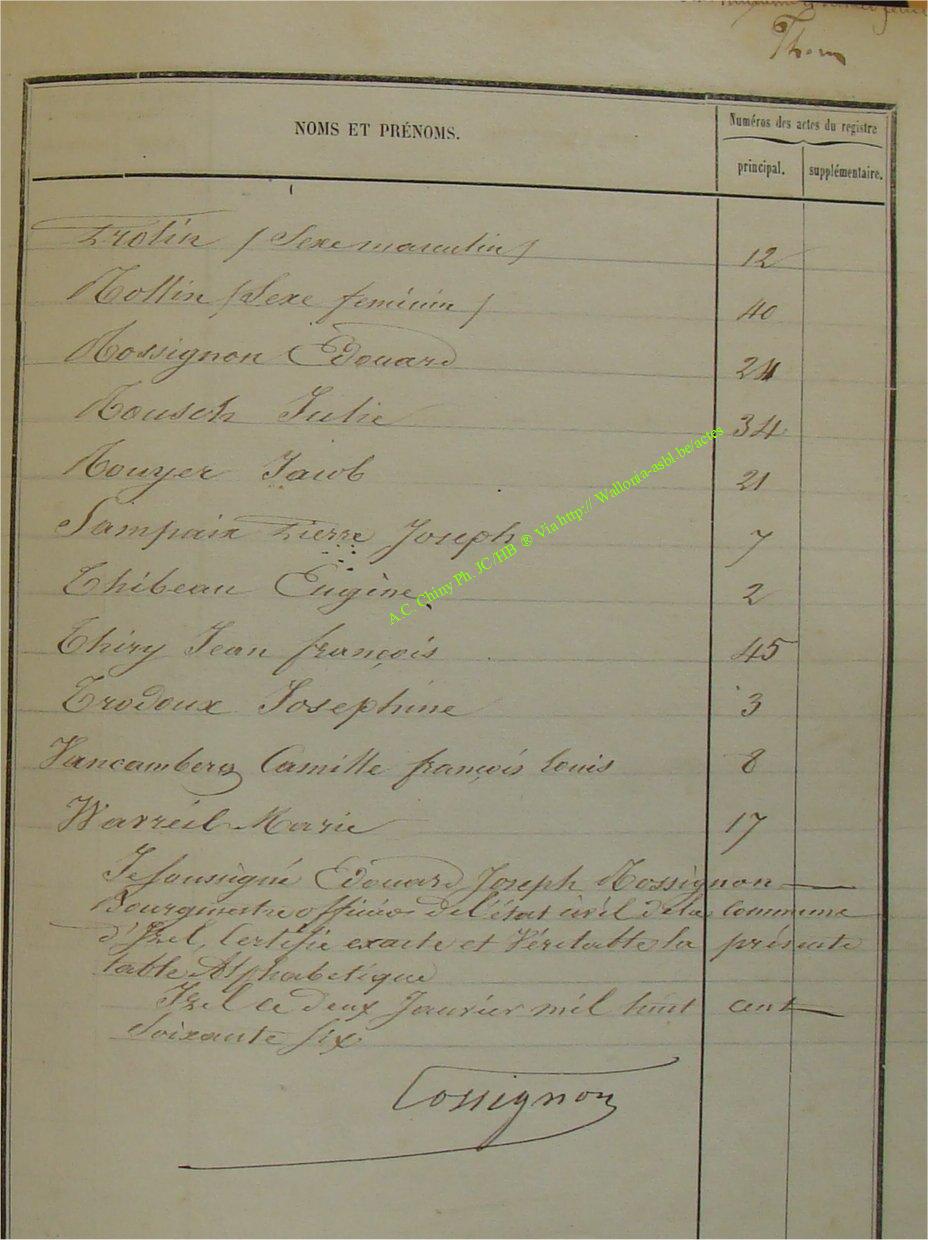 Thom
NOMS ET PRÉNOMS.
Numéros des actes du registre
principal. supplémentaire.
Protin (Sexe masculin) 12
Rollin (Sexe feminin) 40
Rossignon Edouard 24
Rousch Julie 34
Rouyer Jacob 21
Sampaix Pierre Joseph 7
Thibeau Eugène 2
Thiry Jean françois 45
Trodoux Josephine 3
Vancamberg Camille françois louis 8
Warzeil Marie 17
Je soussigné Edouard Joseph Rossignon
Bourgmestre officier de l'état civil de la Commune
d'Izel, Certifie exacte et Véritable la présente
table Alphabetique
Izel ce deux Janvier mil huit cent
Soixante six
Rossignon
A.C. Chiny Ph. JC /HB ® Via http:// Wallonia-asbl.be/actes